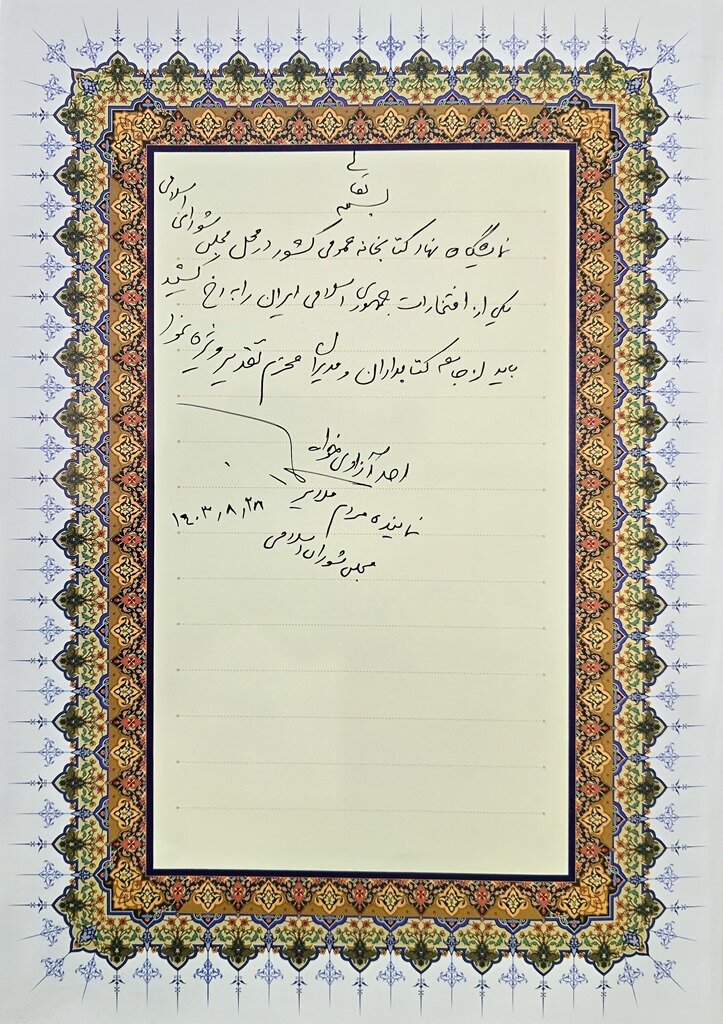 بسمه تعالی
نمایشگاه نهاد کتابخانه عمومی کشور در محل مجلس شورای اسلامی
یکی از افتخارات جمهوری اسلامی ایران را به رخ کشید
باید از جامعه کتابداران و مدیران محترم تقدیر ویژه نمود
احد آزادیخواه
نماینده مردم ملایر ۱۴۰۳/۸/۲۸
مجلس شورای اسلامی